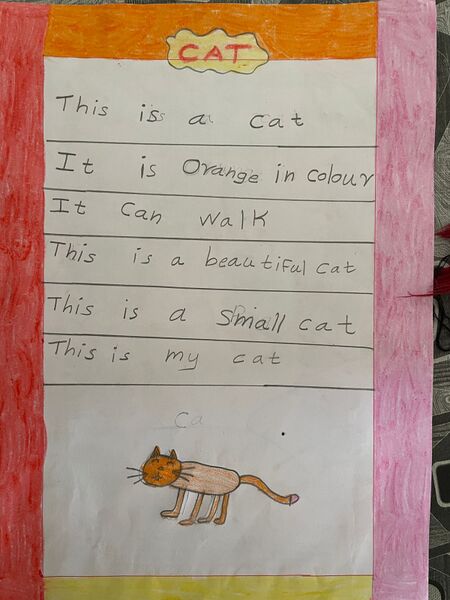 CAT
This is a cat
It is Orange in colour
It can walk
This is a beautiful cat
This is a small cat
This is my cat
ca